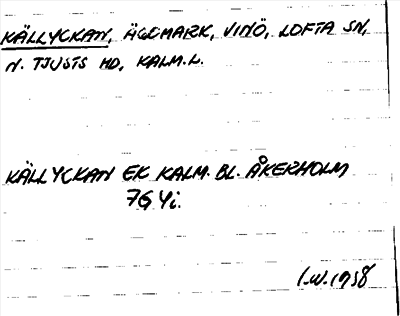 KÄLLYCKAN, ÄGOMARK, VINÖ, LOFTA SN,
N. TJUSTS HD, KALM. L.
KÄLLYCKAN EK KALM. BL. ÅKERHOLM
7G 4i.
I.W. 1958